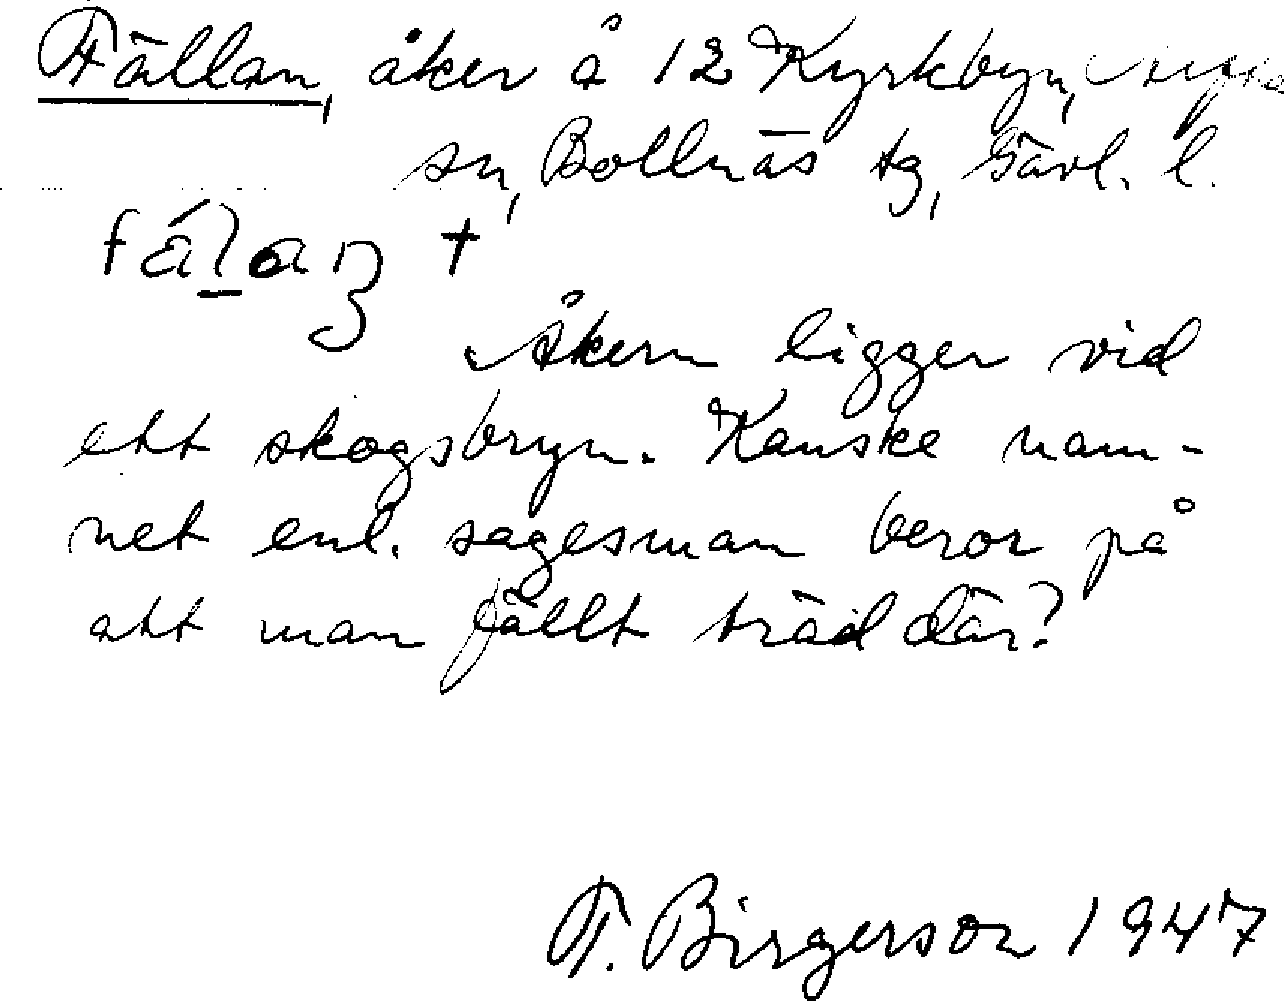 Fällan, åker å 12 Kyrkbyn,
sn, Bollnäs tg, Gävl. l.
Åkern ligger vid
ett skogsbryn. Kanske nam-
net enl. sagesman beror på
att man fällt träd där?
F. Birgerson 1947